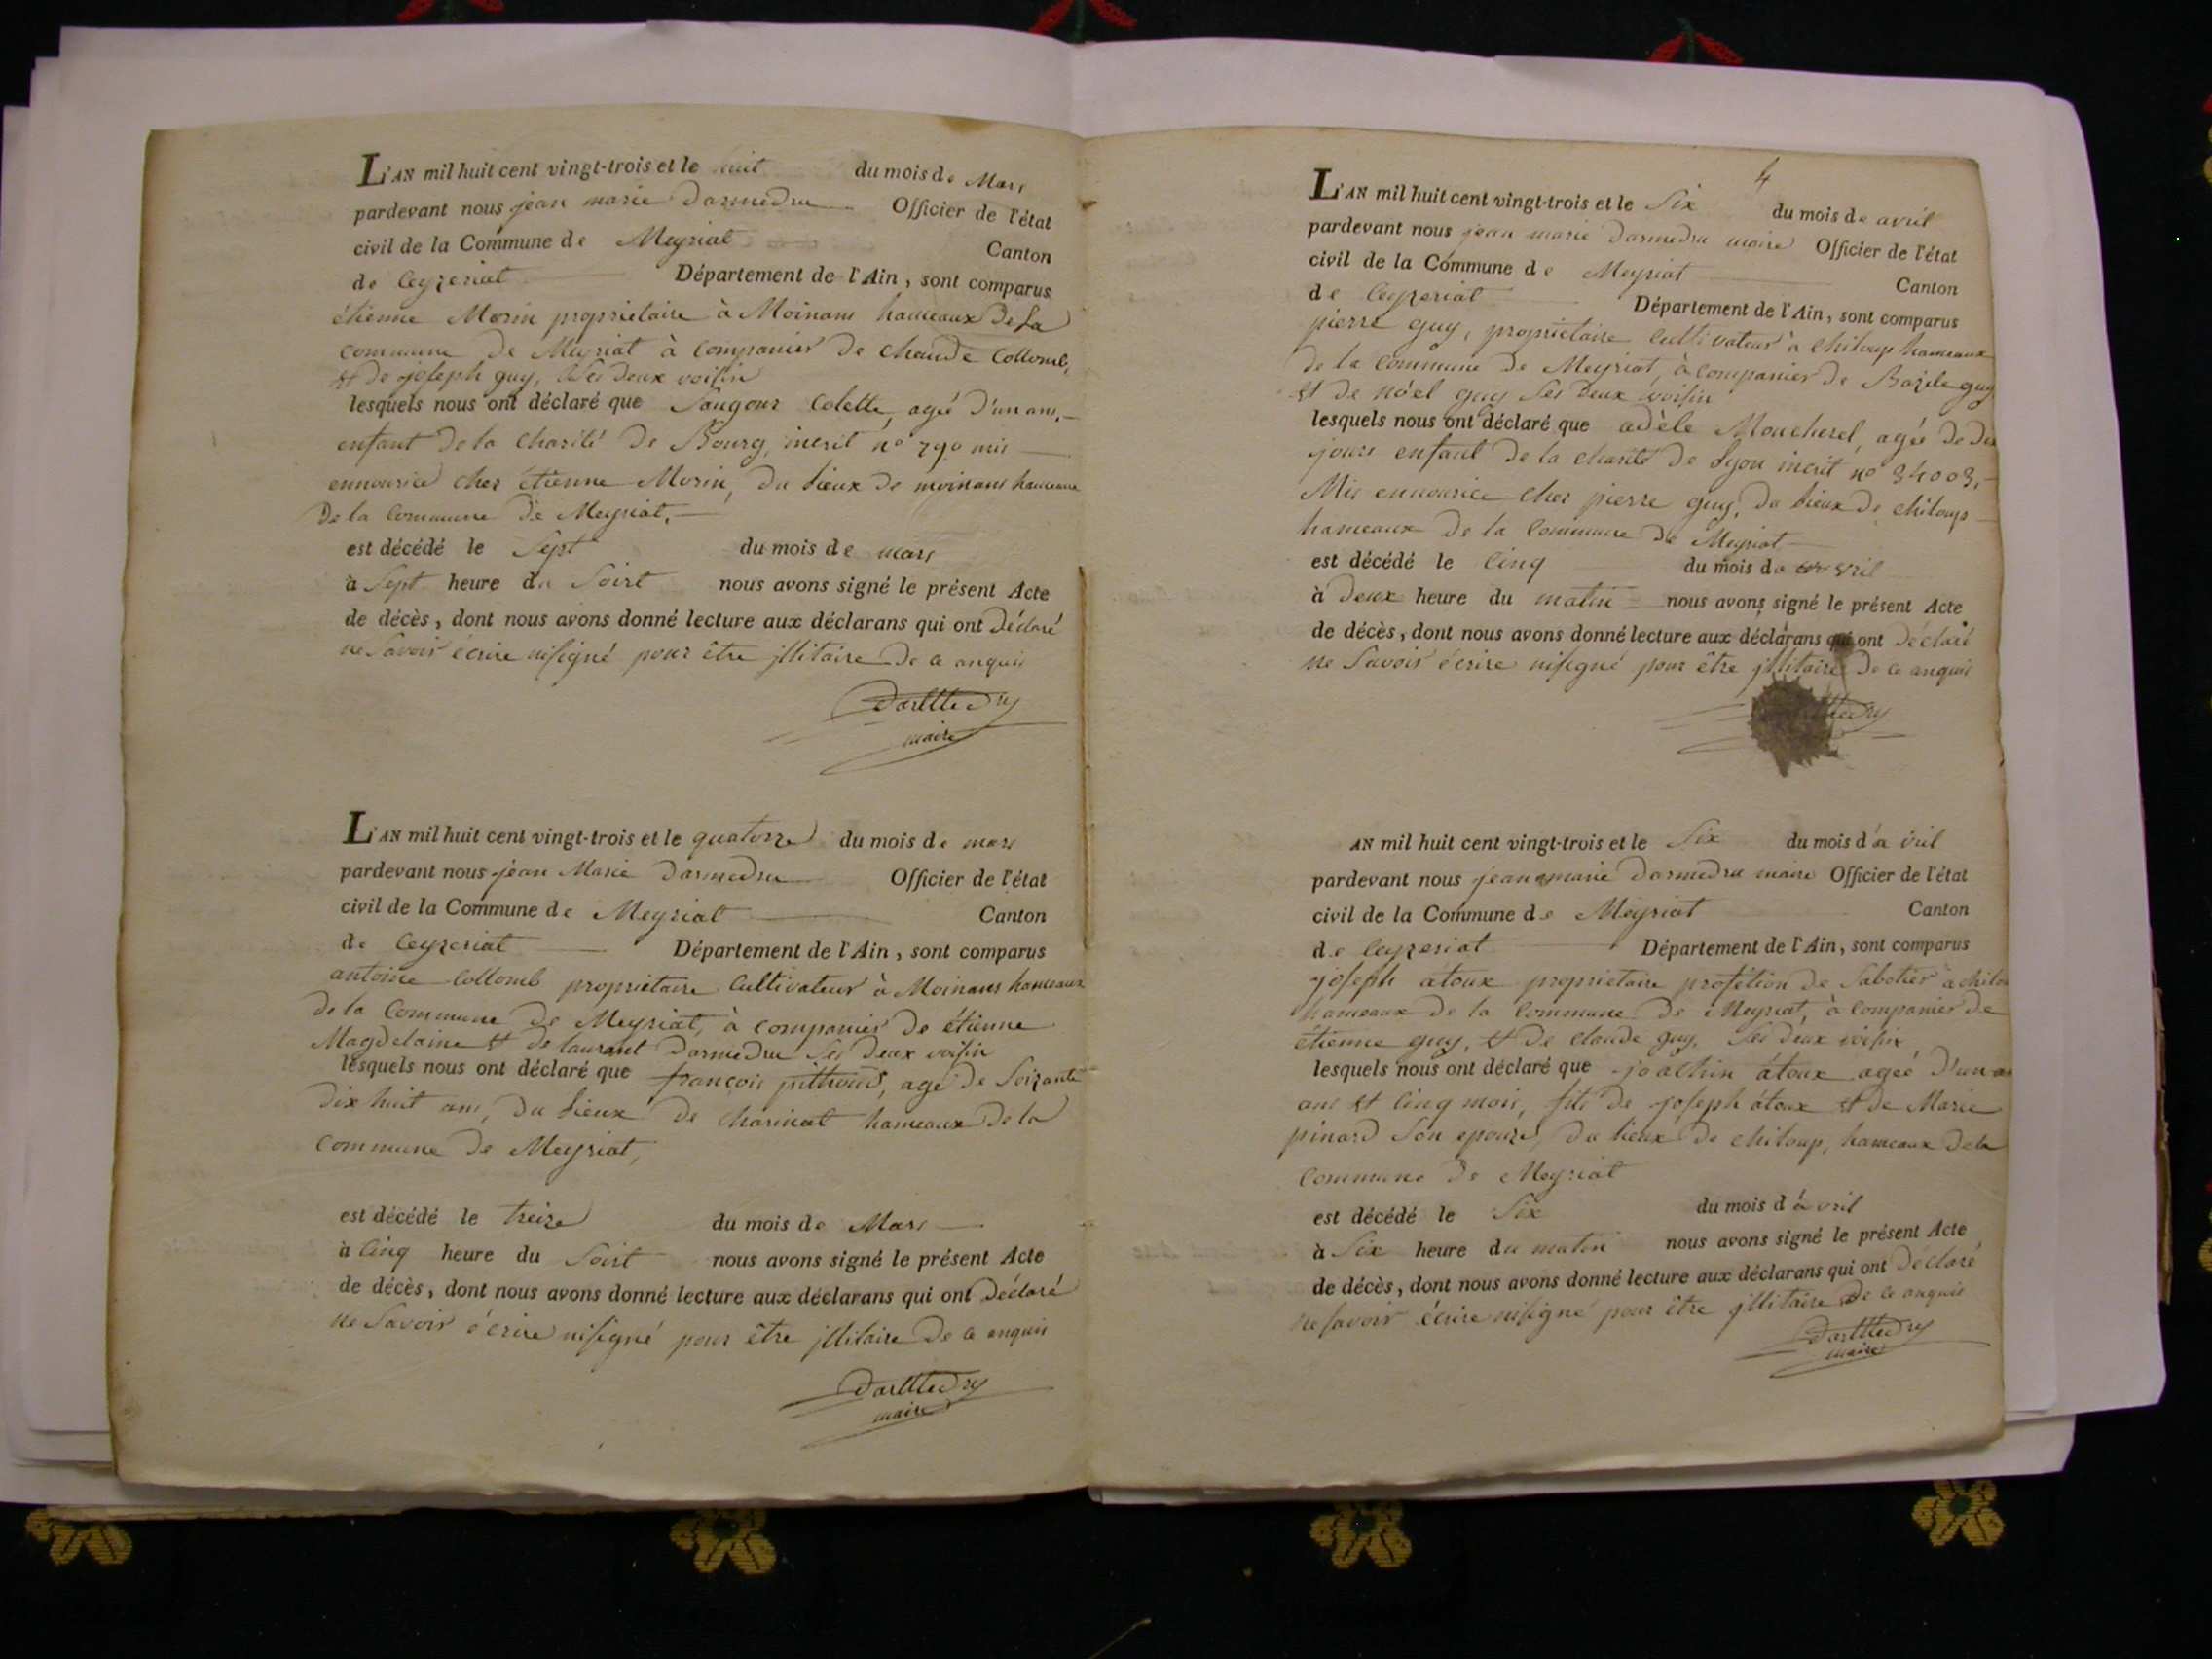 L'AN mil huit cent vingt-trois et le huit du mois de Mars
pardevant nous jean marie Darmedru Officier de l'état
civil de la Commune de Meyriat Canton
de Ceyzeriat Département de l'Ain, sont comparus
étienne Morin proprietaire à Moinans hameaux De La
commune De Meyriat à companier De Claude Collomb,
et De joseph guy, Ses Deux voisin
lesquels nous ont déclaré que Saugour Colette, agée D'un ans,
enfant De la Charité De Bourg, incrit n° 790 mis
ennourice cher étienne Morin, Du Lieux De moinans hameaux
De la Commune De Meyriat.
est décédé le Sept du mois de mars
à Sept heure du Soirt nous avons signé le présent Acte
de décès, dont nous avons donné lecture aux déclarans qui ont Déclaré
ne Savoir écrire nisigné pour être jllitaire De ce anquis
Darmedru
maire
L'AN mil huit cent vingt-trois et le quatorze du mois de mars
pardevant nous jean Marie Darmedru Officier de l'état
civil de la Commune de Meyriat Canton
de Ceyzeriat Département de l'Ain, sont comparus
antoine Collomb proprietaire Cultivateur à Moinans hameaux
De la Commune De Meyriat, à companier De étienne
Magdelaine et De laurant Darmedru Ses Deux voisin
lesquels nous ont déclaré que françois agé De Soizante
Dix huit ans, Du Lieux De Charinat hameaux De la
Commune De Meyriat,
est décédé le treize du mois de Mars
à Cinq heure du Soirt nous avons signé le présent Acte
de décès, dont nous avons donné lecture aux déclarans qui ont Déclaré
ne Savoir écrire nisigné pour être jllitaire De ce anquis
Darmedru
maire
4
L'AN mil huit cent vingt-trois et le Six du mois de avril
pardevant nous jean marie Darmedru maire Officier de l'état
civil de la Commune de Meyriat Canton
de Ceyzeriat Département de l'Ain, sont comparus
pierre guy, proprietaire Cultivateur à Chiloup hameaux
De la Commune De Meyriat, à companier De Bazile guy
et De nöel guy Ses Deux voisin
lesquels nous ont déclaré que adèle Moucherel, agée De Dix
jours enfant De la Charité De Lyon incrit n° 34003,
Mis ennourice Cher pierre guy, Du Lieux De chiloup
hameaux De la Commune De Meyriat
est décédé le Cinq du mois de avril
à Deux heure du matin nous avons signé le présent Acte
de décès, dont nous avons donné lecture aux déclarans qui ont Déclaré
ne Savoir écrire nisigné pour être jllitaire De ce anquis
AN mil huit cent vingt-trois et le Six du mois d'avril
pardevant nous jean marie Darmedru maire Officier de l'état
civil de la Commune de Meyriat Canton
de Ceyzeriat Département de l'Ain, sont comparus
joseph atoux proprietaire profétion De Sabotier à chilou
hameaux De la Commune De Meyriat, à companier De
étienne guy, et De claude guy, Ses Deux voisin
lesquels nous ont déclaré que joachin átoux agée D'un
ans et Cinq mois, fils De joseph átoux et De Marie
pinard Son epouze, Du lieux De chiloup, hameaux De la
Commune De Meyriat
est décédé le Six du mois d'avril
à Six heure du matin nous avons signé le présent Acte
de décès, dont nous avons donné lecture aux déclarans qui ont Déclaré
ne savoir écrire nisigné pour être jllitaire De ce anquis
Darmedru
maire